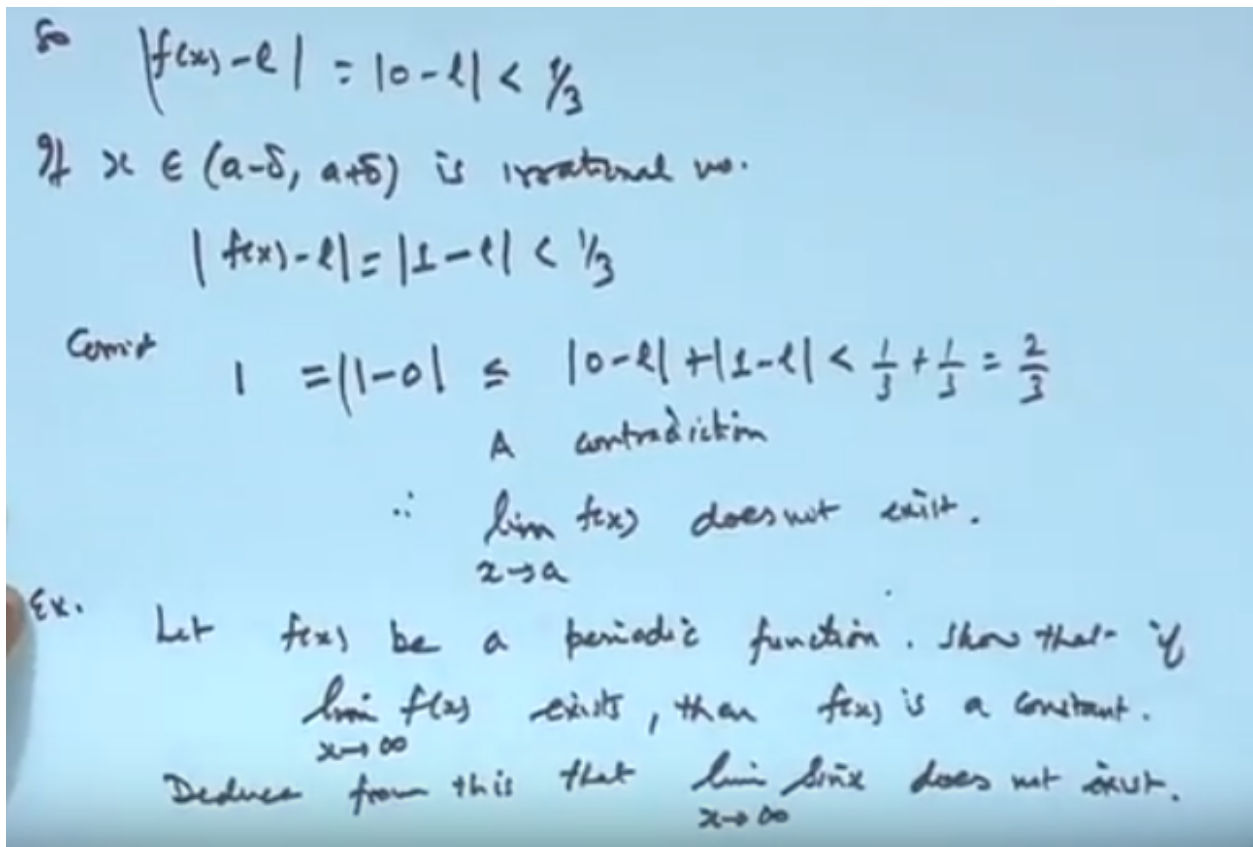 So |f(x)-l| = |0-l| < 1/3
If x ∈ (a-δ, a+δ) is irrational no.
|f(x)-l| = |1-l| < 1/3
1 = |1-0| ≤ |0-l| + |1-l| < 1/3 + 1/3 = 2/3
A contradiction
∴ lim f(x) does not exist.
x→a
Ex. Let f(x) be a periodic function. Show that if
lim f(x) exists, then f(x) is a constant.
x→∞
Deduce from this that lim Sin x does not exist.
x→∞